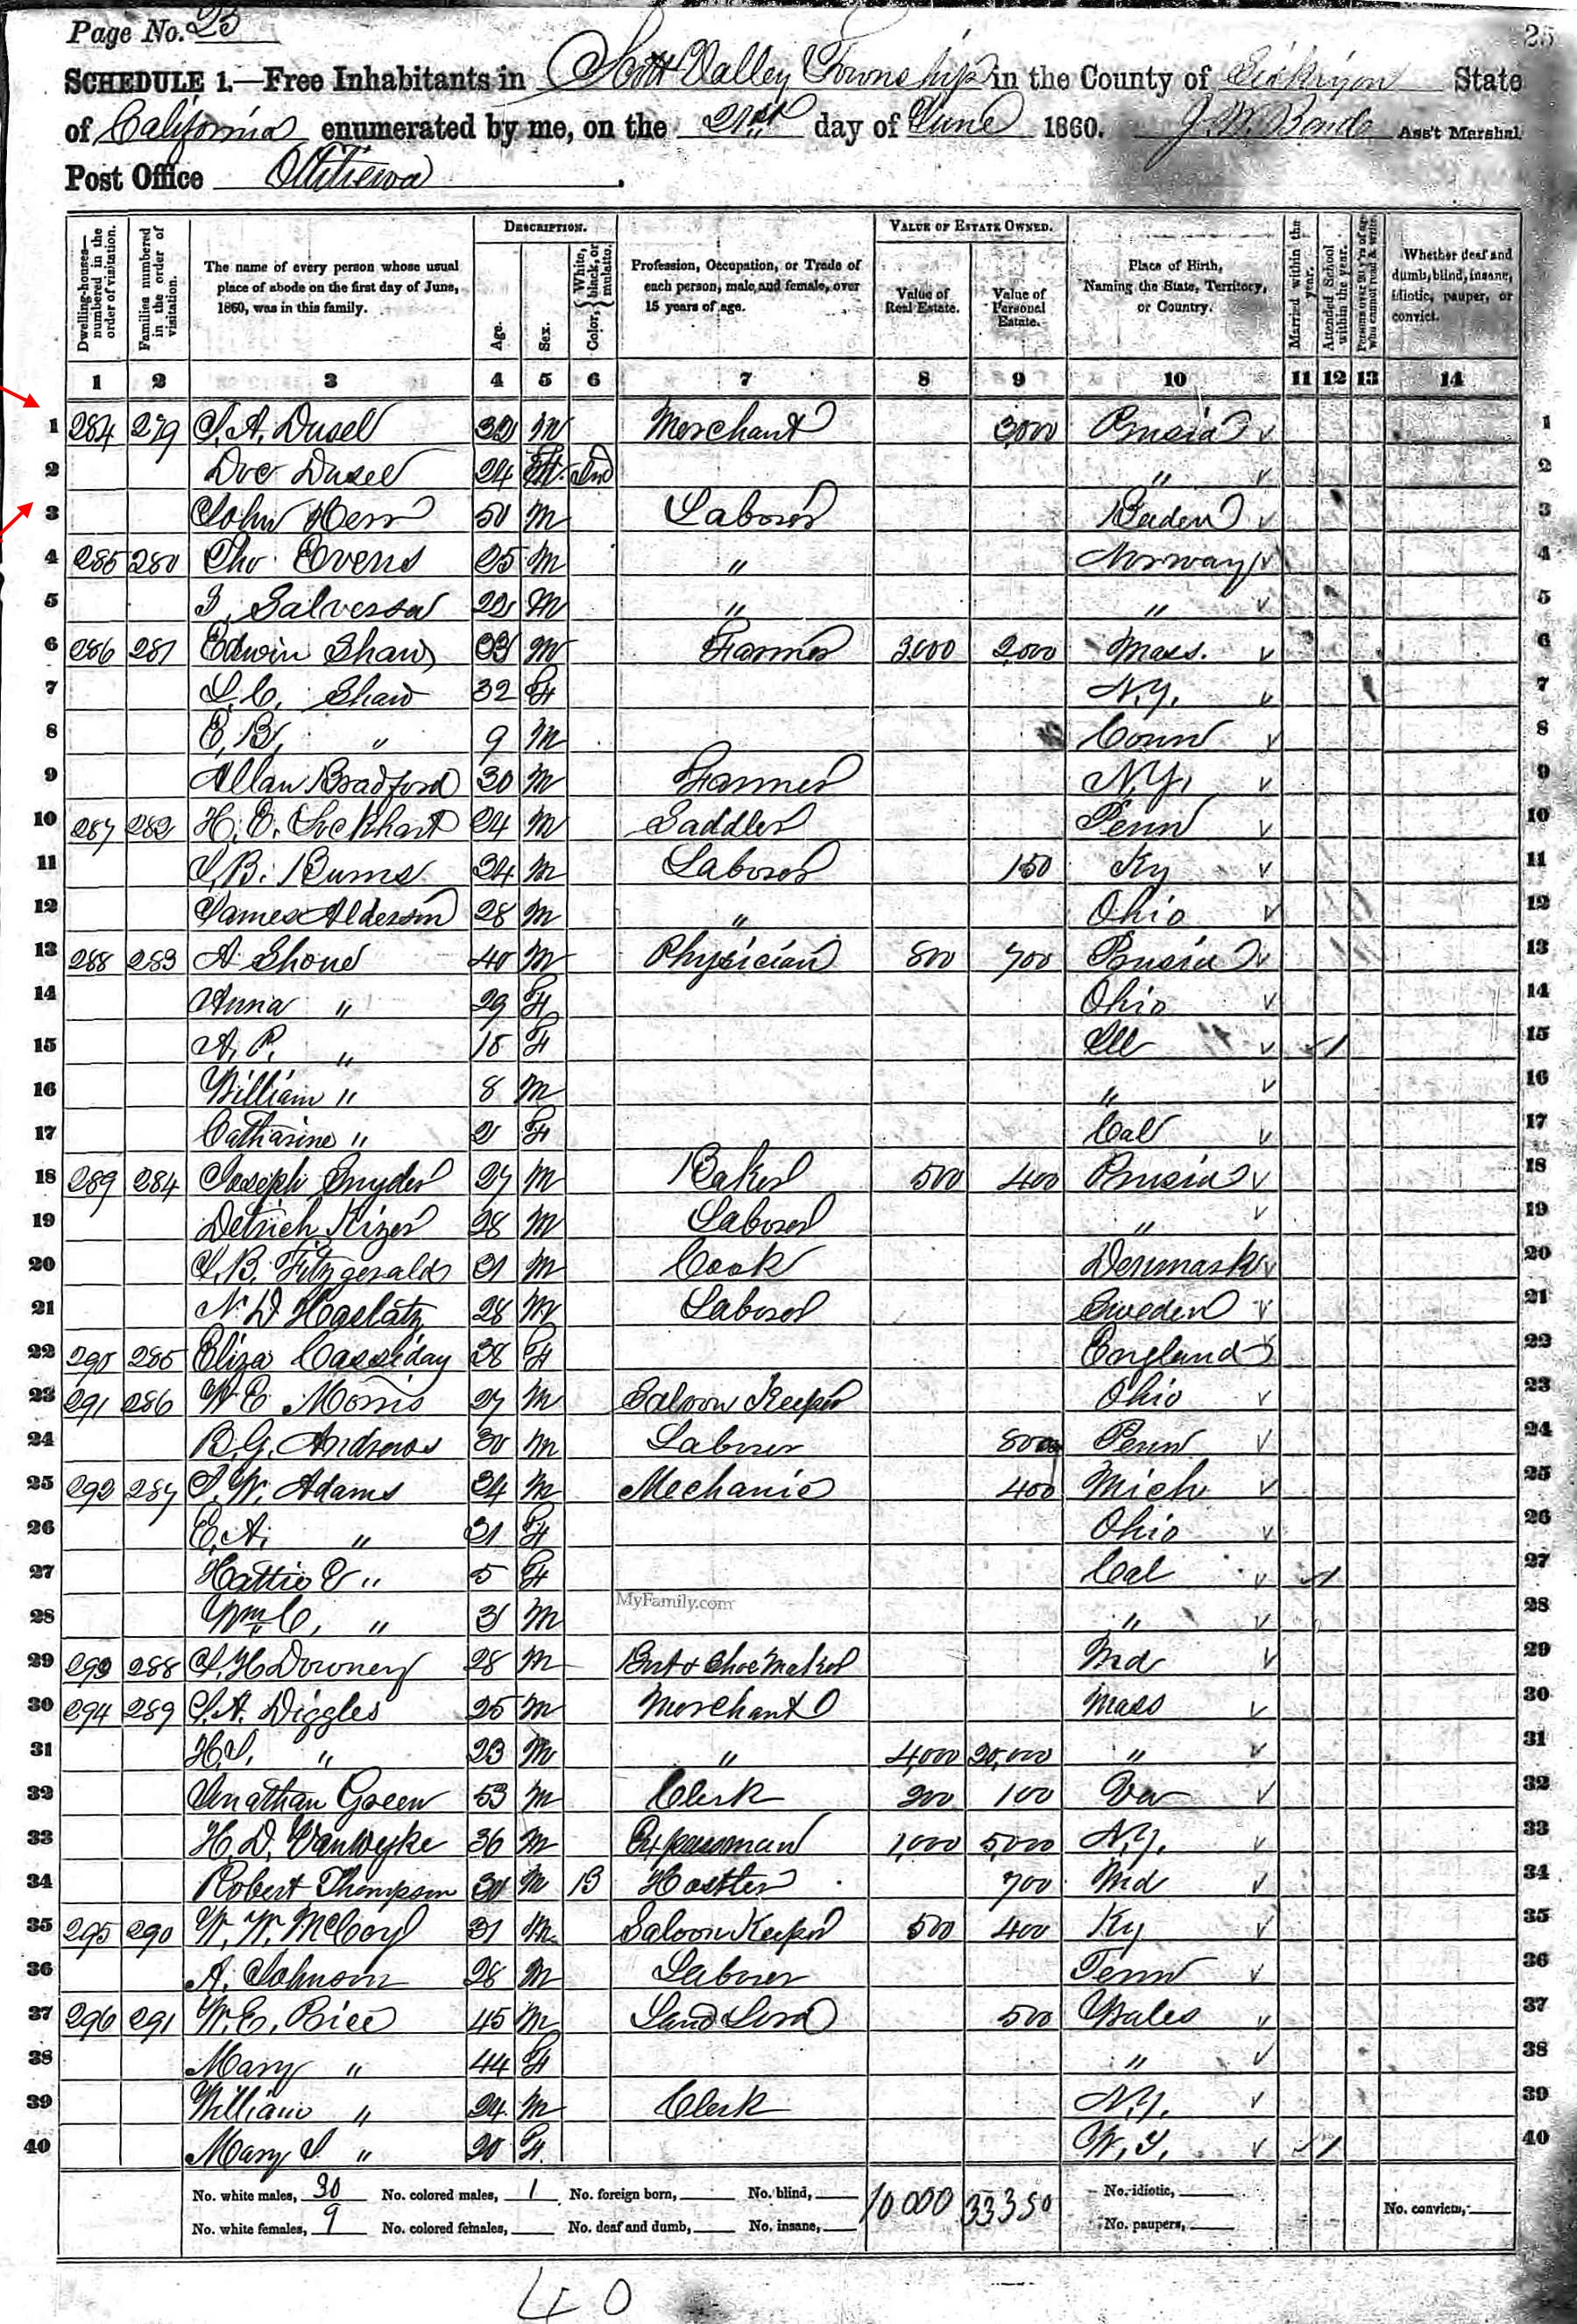 Page No. 23
25
SCHEDULE 1.—Free Inhabitants in Scott Valley Township in the County of Siskiyou State
of California enumerated by me, on the 21st day of June 1860. Ass't Marshal.
Post Office
Dwelling-houses—numbered in the order of visitation.
Families numbered in the order of visitation.
The name of every person whose usual place of abode on the first day of June, 1860, was in this family.
DESCRIPTION.
Age.
Sex.
Color, { White, black, or mulatto.
Profession, Occupation, or Trade of each person, male and female, over 15 years of age.
VALUE OF ESTATE OWNED.
Value of Real Estate.
Value of Personal Estate.
Place of Birth, Naming the State, Territory, or Country.
Married within the year.
Attended School within the year.
Persons over 20 y'rs of age who cannot read & write.
Whether deaf and dumb, blind, insane, idiotic, pauper, or convict.
1 2 3 4 5 6 7 8 9 10 11 12 13 14
1 284 279 Dusel 32 M Merchant 3,000 Prusia 1
2 Dusel 24 F Ind " 2
3 John Herr 50 M Laborer Baden 3
4 285 280 Tho Evens 25 M " Norway 4
5 22 M " " 5
6 286 281 Edwin Shaw 33 M Farmer 3000 2000 Mass. 6
7 Shaw 32 F N.Y. 7
8 E. B. " 9 M Conn 8
9 Allan Bradford 30 M Farmer N.Y. 9
10 287 282 H. E. Lockhart 24 M Saddler Penn 10
11 Burns 34 M Laborer 150 Ky 11
12 James Alderson 28 M " Ohio 12
13 288 283 A Shone 40 M Physician 800 700 Prusia 13
14 Anna " 29 F Ohio 14
15 A. P. " F Ill 15
16 William " 8 M " 16
17 Catharine " 2 F Cal 17
18 289 284 Joseph Snyder 27 M Baker 500 400 Prusia 18
19 Detrich Kizer 28 M Laborer " 19
20 J. B. Fitzgerald 31 M Cook Denmark 20
21 N. D 28 M Laborer Sweden 21
22 290 285 Eliza Cassiday 38 F England 22
23 291 286 W E Morris 27 M Saloon Keeper Ohio 23
24 B. G. Andrews 30 M Laborer Penn 24
25 292 287 J. W. Adams 34 M Mechanic 400 Mich 25
26 E. A. " 31 F Ohio 26
27 Hattie E " 5 F Cal 27
28 Wm C. " 3 M " 28
29 293 288 J. H Downey 28 M Boot & Shoe Maker Md 29
30 294 289 Diggles 25 M Merchant Mass 30
31 " 23 M " 4,000 20,000 " 31
32 Jonathan Green 53 M Clerk 200 100 32
33 H. D. VanWyke 36 M Expressman 1,000 5,000 N.Y. 33
34 Robert Thompson 30 M B Hostler 700 Md 34
35 295 290 W. W. McCoy 31 M Saloon Keeper 500 400 Ky 35
36 A. Johnson 28 M Laborer Tenn 36
37 296 291 W. E. Price 45 M Land Lord 500 Wales 37
38 Mary " 44 F " 38
39 William " 24 M Clerk N.Y. 39
40 Mary " 20 F 40
MyFamily.com
No. white males, 30 No. colored males, 1 No. foreign born, No. blind, 10000 33350 No. idiotic,
No. white females, 9 No. colored females, No. deaf and dumb, No. insane, No. paupers, No. convicts,
40